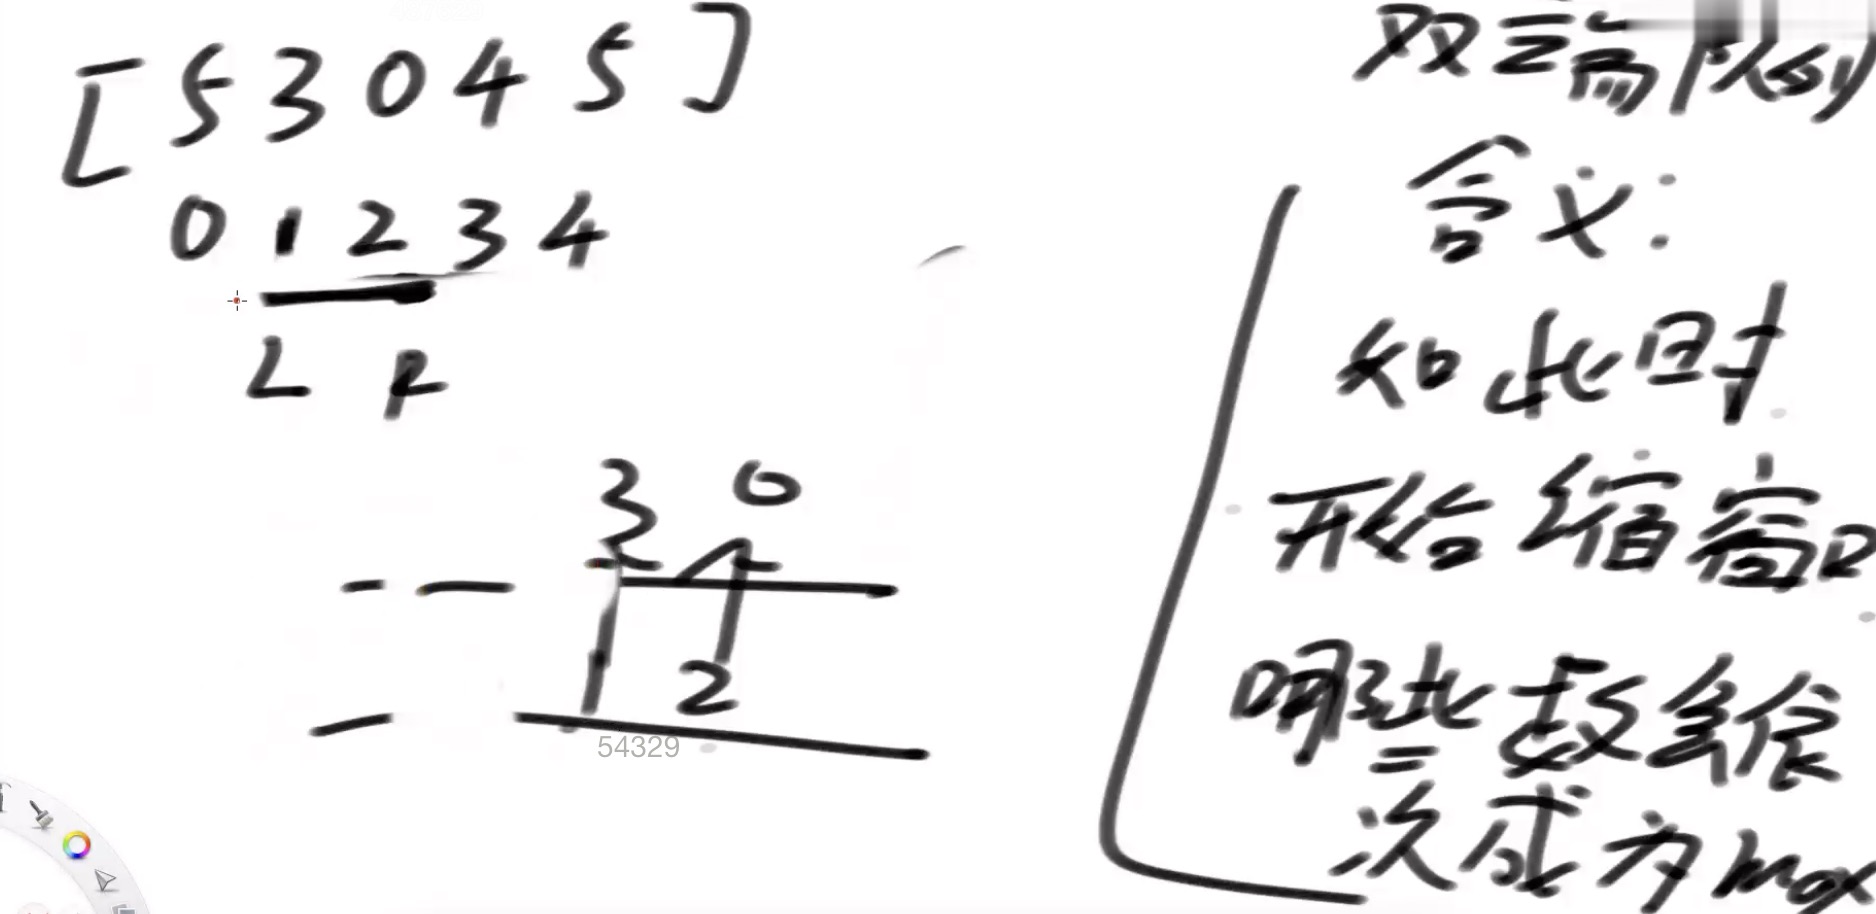 [ 5 3 0 4 5 ]
0 1 2 3 4
L R
3 0
1 2
54329
双端队列
含义:
如此时
开始缩窗口
哪些数会依
次成为max